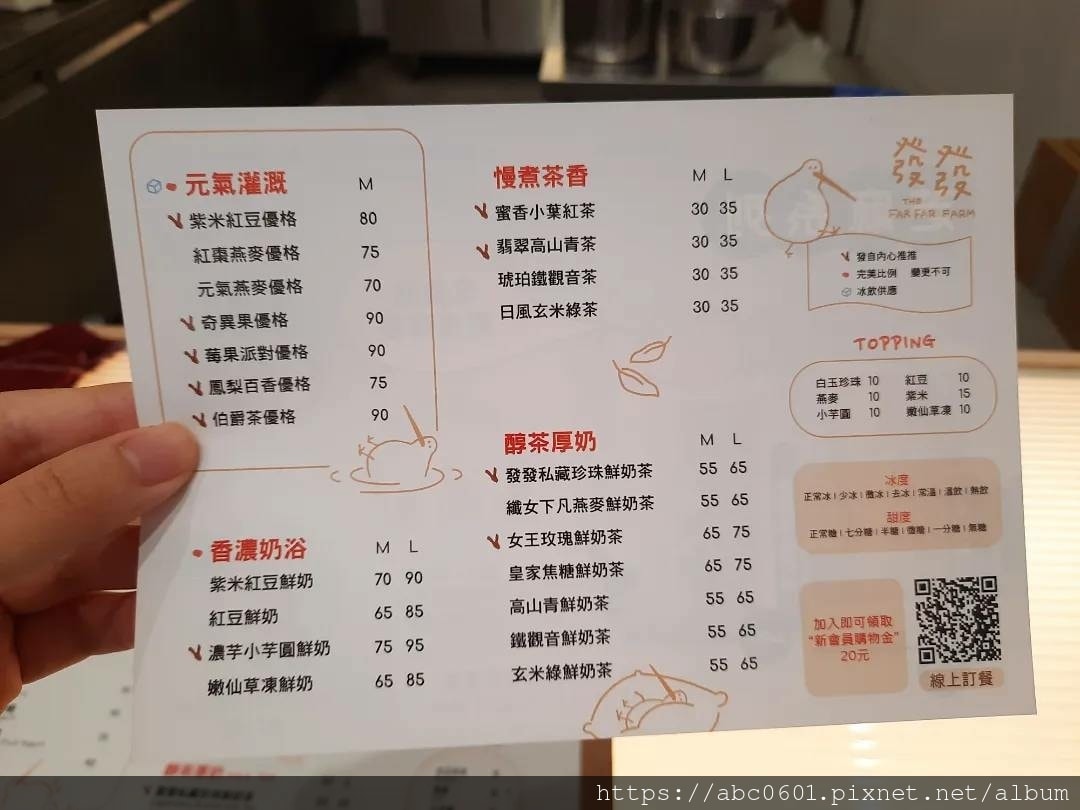 元氣灌溉 M
紫米紅豆優格 80
紅棗燕麥優格 75
元氣燕麥優格 70
奇異果優格 90
莓果派對優格 90
鳳梨百香優格 75
伯爵茶優格 90
香濃奶浴 M L
紫米紅豆鮮奶 70 90
紅豆鮮奶 65 85
濃芋小芋圓鮮奶 75 95
嫩仙草凍鮮奶 65 85
慢煮茶香 M L
蜜香小葉紅茶 30 35
翡翠高山青茶 30 35
琥珀鐵觀音茶 30 35
日風玄米綠茶 30 35
醇茶厚奶 M L
發發私藏珍珠鮮奶茶 55 65
纖女下凡燕麥鮮奶茶 55 65
女王玫瑰鮮奶茶 65 75
皇家焦糖鮮奶茶 65 75
高山青鮮奶茶 55 65
鐵觀音鮮奶茶 55 65
玄米綠鮮奶茶 55 65
發發
THE
FAR FAR FARM
發自內心推推
完美比例 變更不可
冰飲供應
TOPPING
白玉珍珠 10 紅豆 10
燕麥 10 紫米 15
小芋圓 10 嫩仙草凍 10
冰度
正常冰 | 少冰 | 微冰 | 去冰 | 常溫 | 溫飲 | 熱飲
甜度
正常糖 | 七分糖 | 半糖 | 微糖 | 一分糖 | 無糖
加入即可領取
“新會員購物金”
20元
線上訂餐
https://abc0601.pixnet.net/album